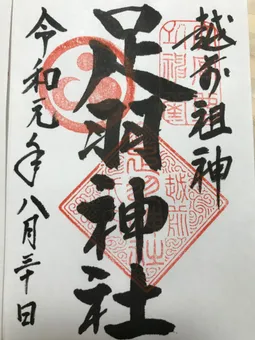 越前祖神
足羽神社
令和元年八月三十日